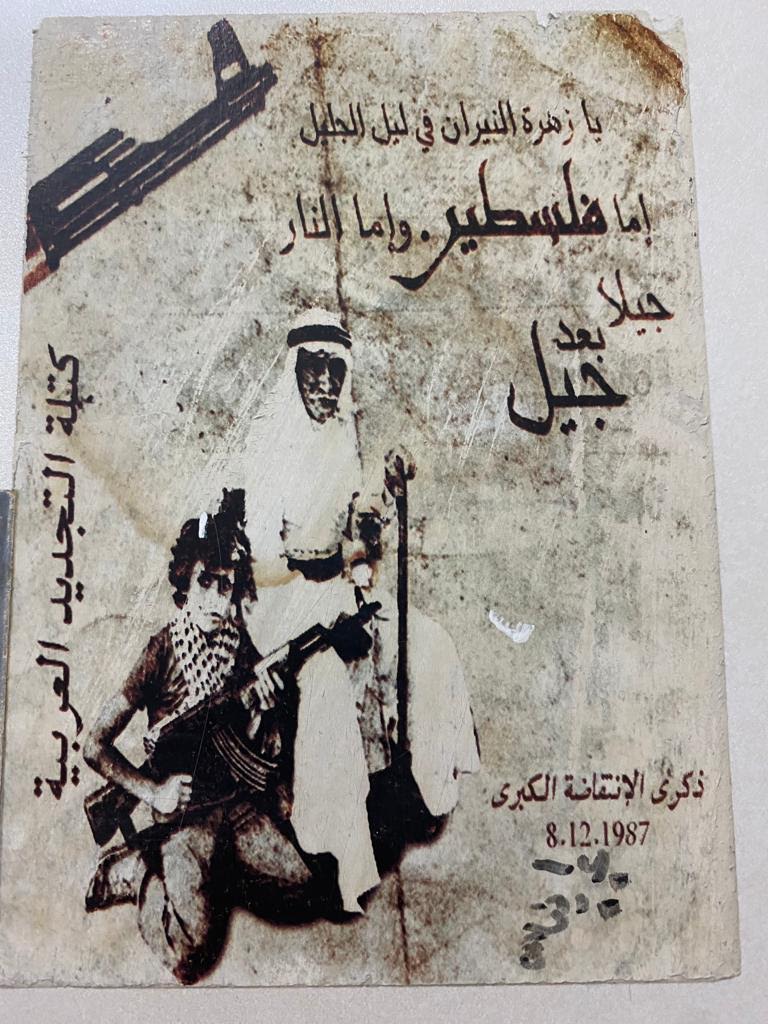 يا زهرة النيران في ليل الجليل
إما فلسطين. وإما النار
جيلا
بعد
جيل
كتلة التجديد العربية
ذكرى الإنتفاضة الكبرى
8.12.1987